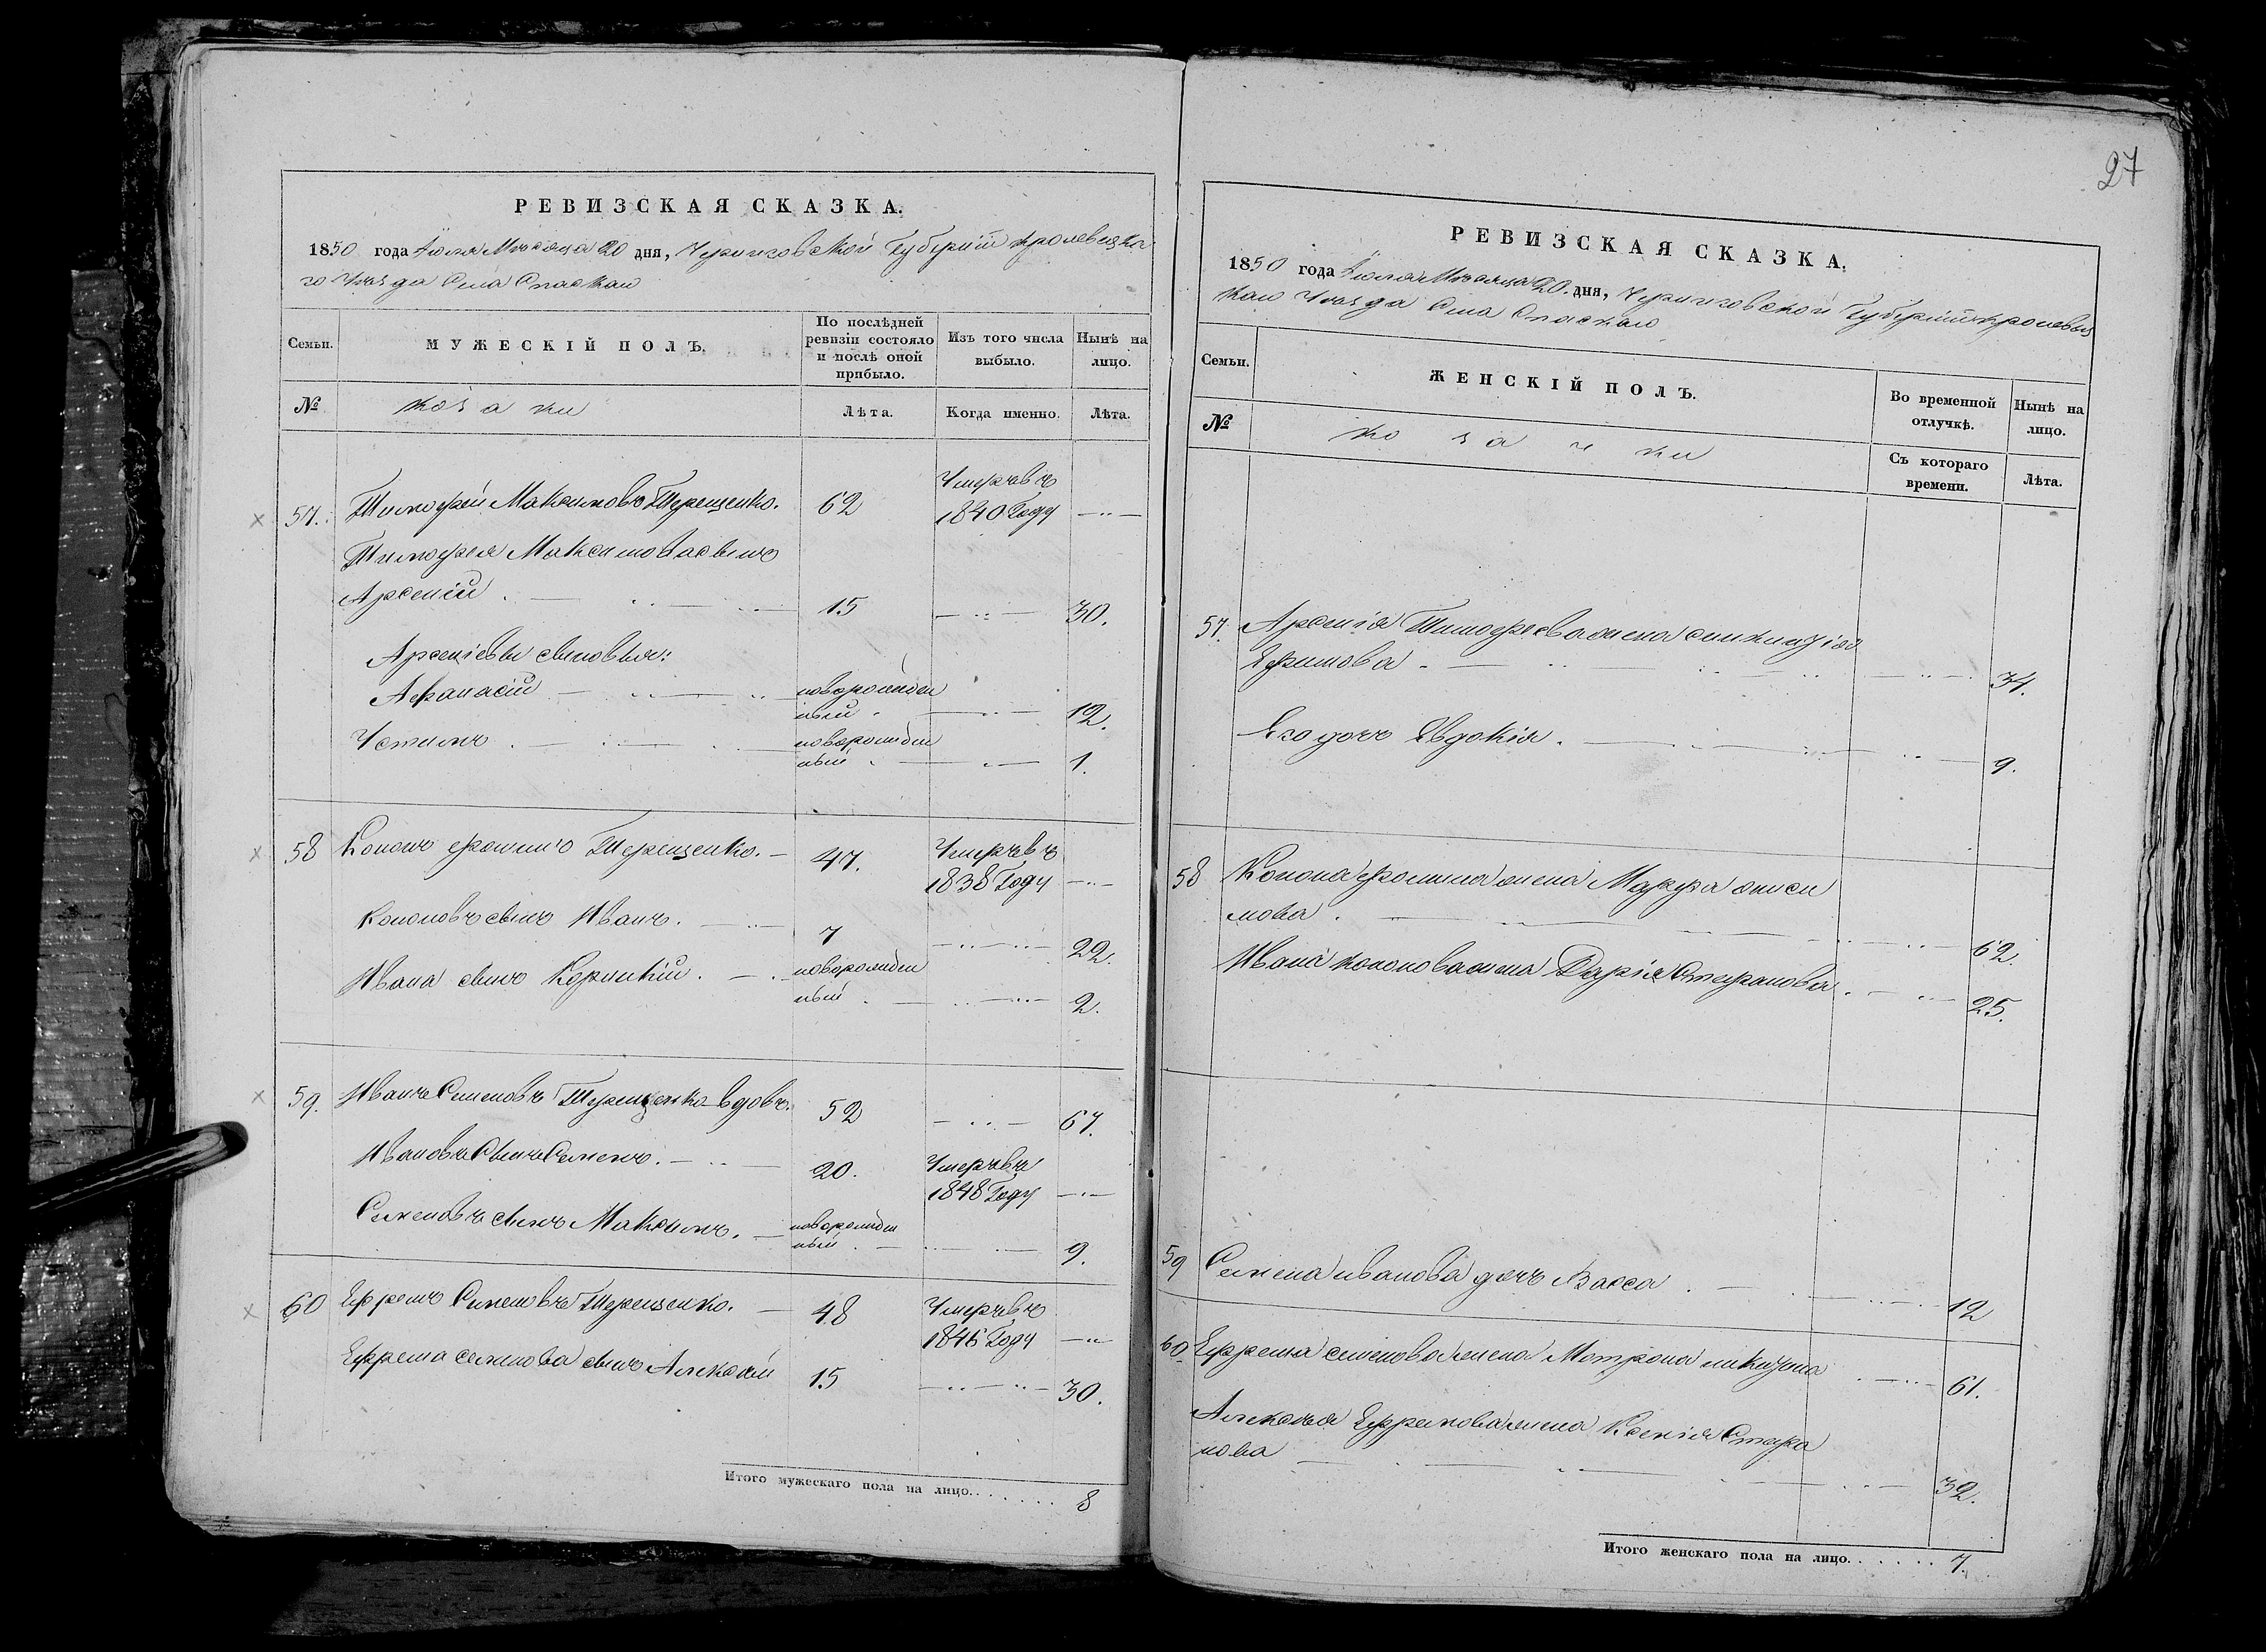 27
РЕВИЗСКАЯ СКАЗКА.
1850 года Іюля Мѣсяца 20 дня, Черниговской Губерніи Кролевецка
го Уѣзда Села Спаскаго
Семьи.
МУЖЕСКІЙ ПОЛЪ.
По послѣдней
ревизіи состояло
и послѣ оной
прибыло.
Изъ того числа
выбыло.
Нынѣ на
лицо.
№
козаки
Лѣта.
Когда именно.
Лѣта.
57. Тимофей Максимовъ Терещенко. 62 Умеръ въ
1840 Году
Тимофея Максимова сынъ
Арсеній 15 30.
Арсеніевы сыновья:
Афанасій новорожден
ный 12.
Устимъ новорожден
ный 1.
58 Кононъ Фоминъ Терещенко. 47. Умеръ въ
1838 Году
Кононовъ сынъ Иванъ. 7 22.
Ивана сынъ Корнилій. новорожден
ный 2.
59. Иванъ Семеновъ Терещенко вдовъ. 52 67.
Ивановъ Сынъ Семенъ. 20. Умеръ въ
1848 Году
Семеновъ сынъ Максимъ. новорожден
ный 9.
60 Ефремъ Семеновъ Терещенко. 48 Умеръ въ
1846 Году
Ефрема семенова сынъ Алексей 15 30.
Итого мужескаго пола на лицо. 8
РЕВИЗСКАЯ СКАЗКА.
1850 года Іюля Мѣсяца 20. дня, Черниговской Губерніи Кролевец
каго Уѣзда Села Спаскаго
Семьи.
ЖЕНСКІЙ ПОЛЪ.
Во временной
отлучкѣ.
Нынѣ на
лицо.
№
козачки
Съ котораго
времени.
Лѣта.
57. Арсенія Тимофеева жена
Ефимова 34.
Его дочь Евдокія. 9.
58 Конона Фомина жена Марфа аниси
мова. 62.
Ивана кононова жена Дарія Стефанова 25.
59 Семена иванова дочь Васса 12
60. Ефрема семенова жена Мотрона 61.
Алексея Ефремова жена Ксенія Стефа
нова 32.
Итого женскаго пола на лицо. 7.